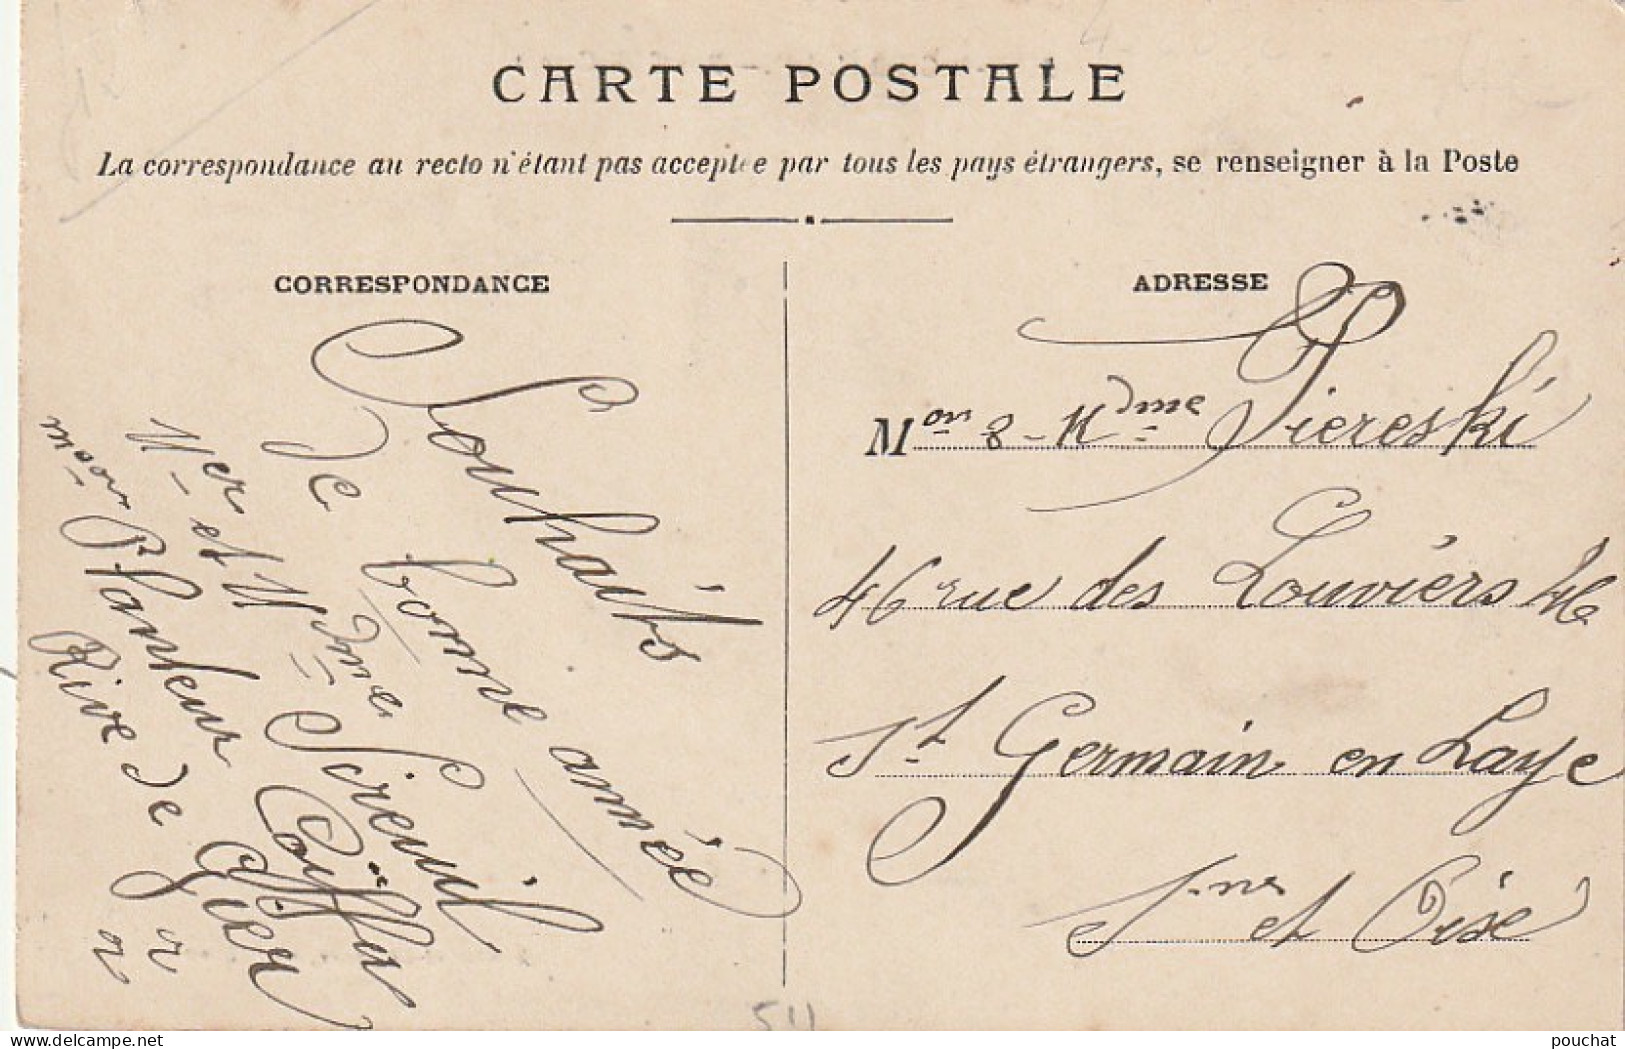 CARTE POSTALE
La correspondance au recto n'étant pas acceptée par tous les pays étrangers, se renseigner à la Poste
CORRESPONDANCE
Souhaits
de bonne année
Mer et Mdme Sireuil Coiffeur
mson Planteur
Rive de Gier
ADRESSE
Mon & Mdme Piereski
46 rue des Louviers 46
St Germain en Laye
Sne et Oise
511
www.delcampe.net
pouchat